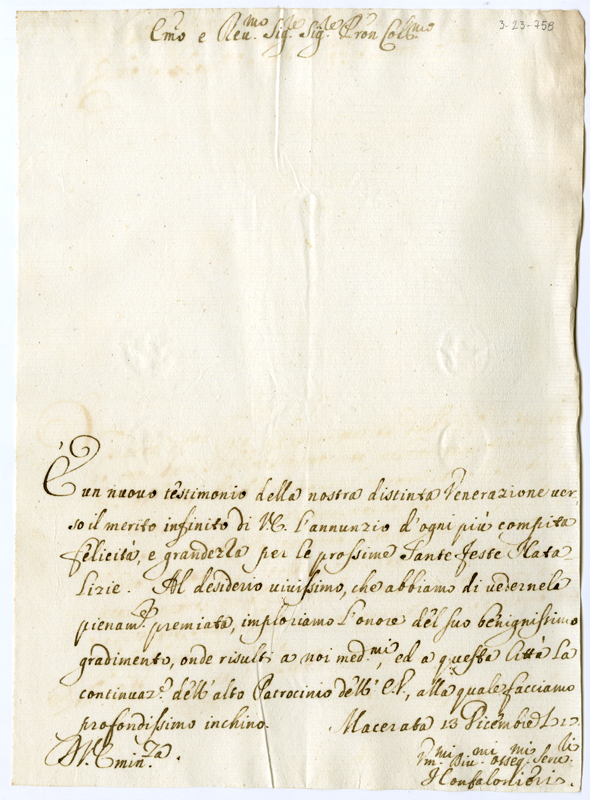 3-23-758
Emo e Reu.mo Sig.re Sig.re Pron Col.mo
È un nuovo testimonio della nostra distinta Venerazione uer,
so il merito infinito di V.E. l'annunzio d'ogni più compita
felicità, e grandezza per le prossime Sante Feste Nata
lizie. Al desiderio viuissimo, che abbiamo di uedernela
pienam.te premiata, imploriamo l'onore del suo benignissimo
gradimento, onde risulti a noi med.mi, ed a questa Città la
continuaz.e dell'alto Patrocinio dell'E.V., alla quale facciamo
profondissimo inchino. Macerata 13 Dicembre
D.V. Emin.za.
Vm.mi Diu.mi osseq.mi Seru.ri
I Confalonieri.